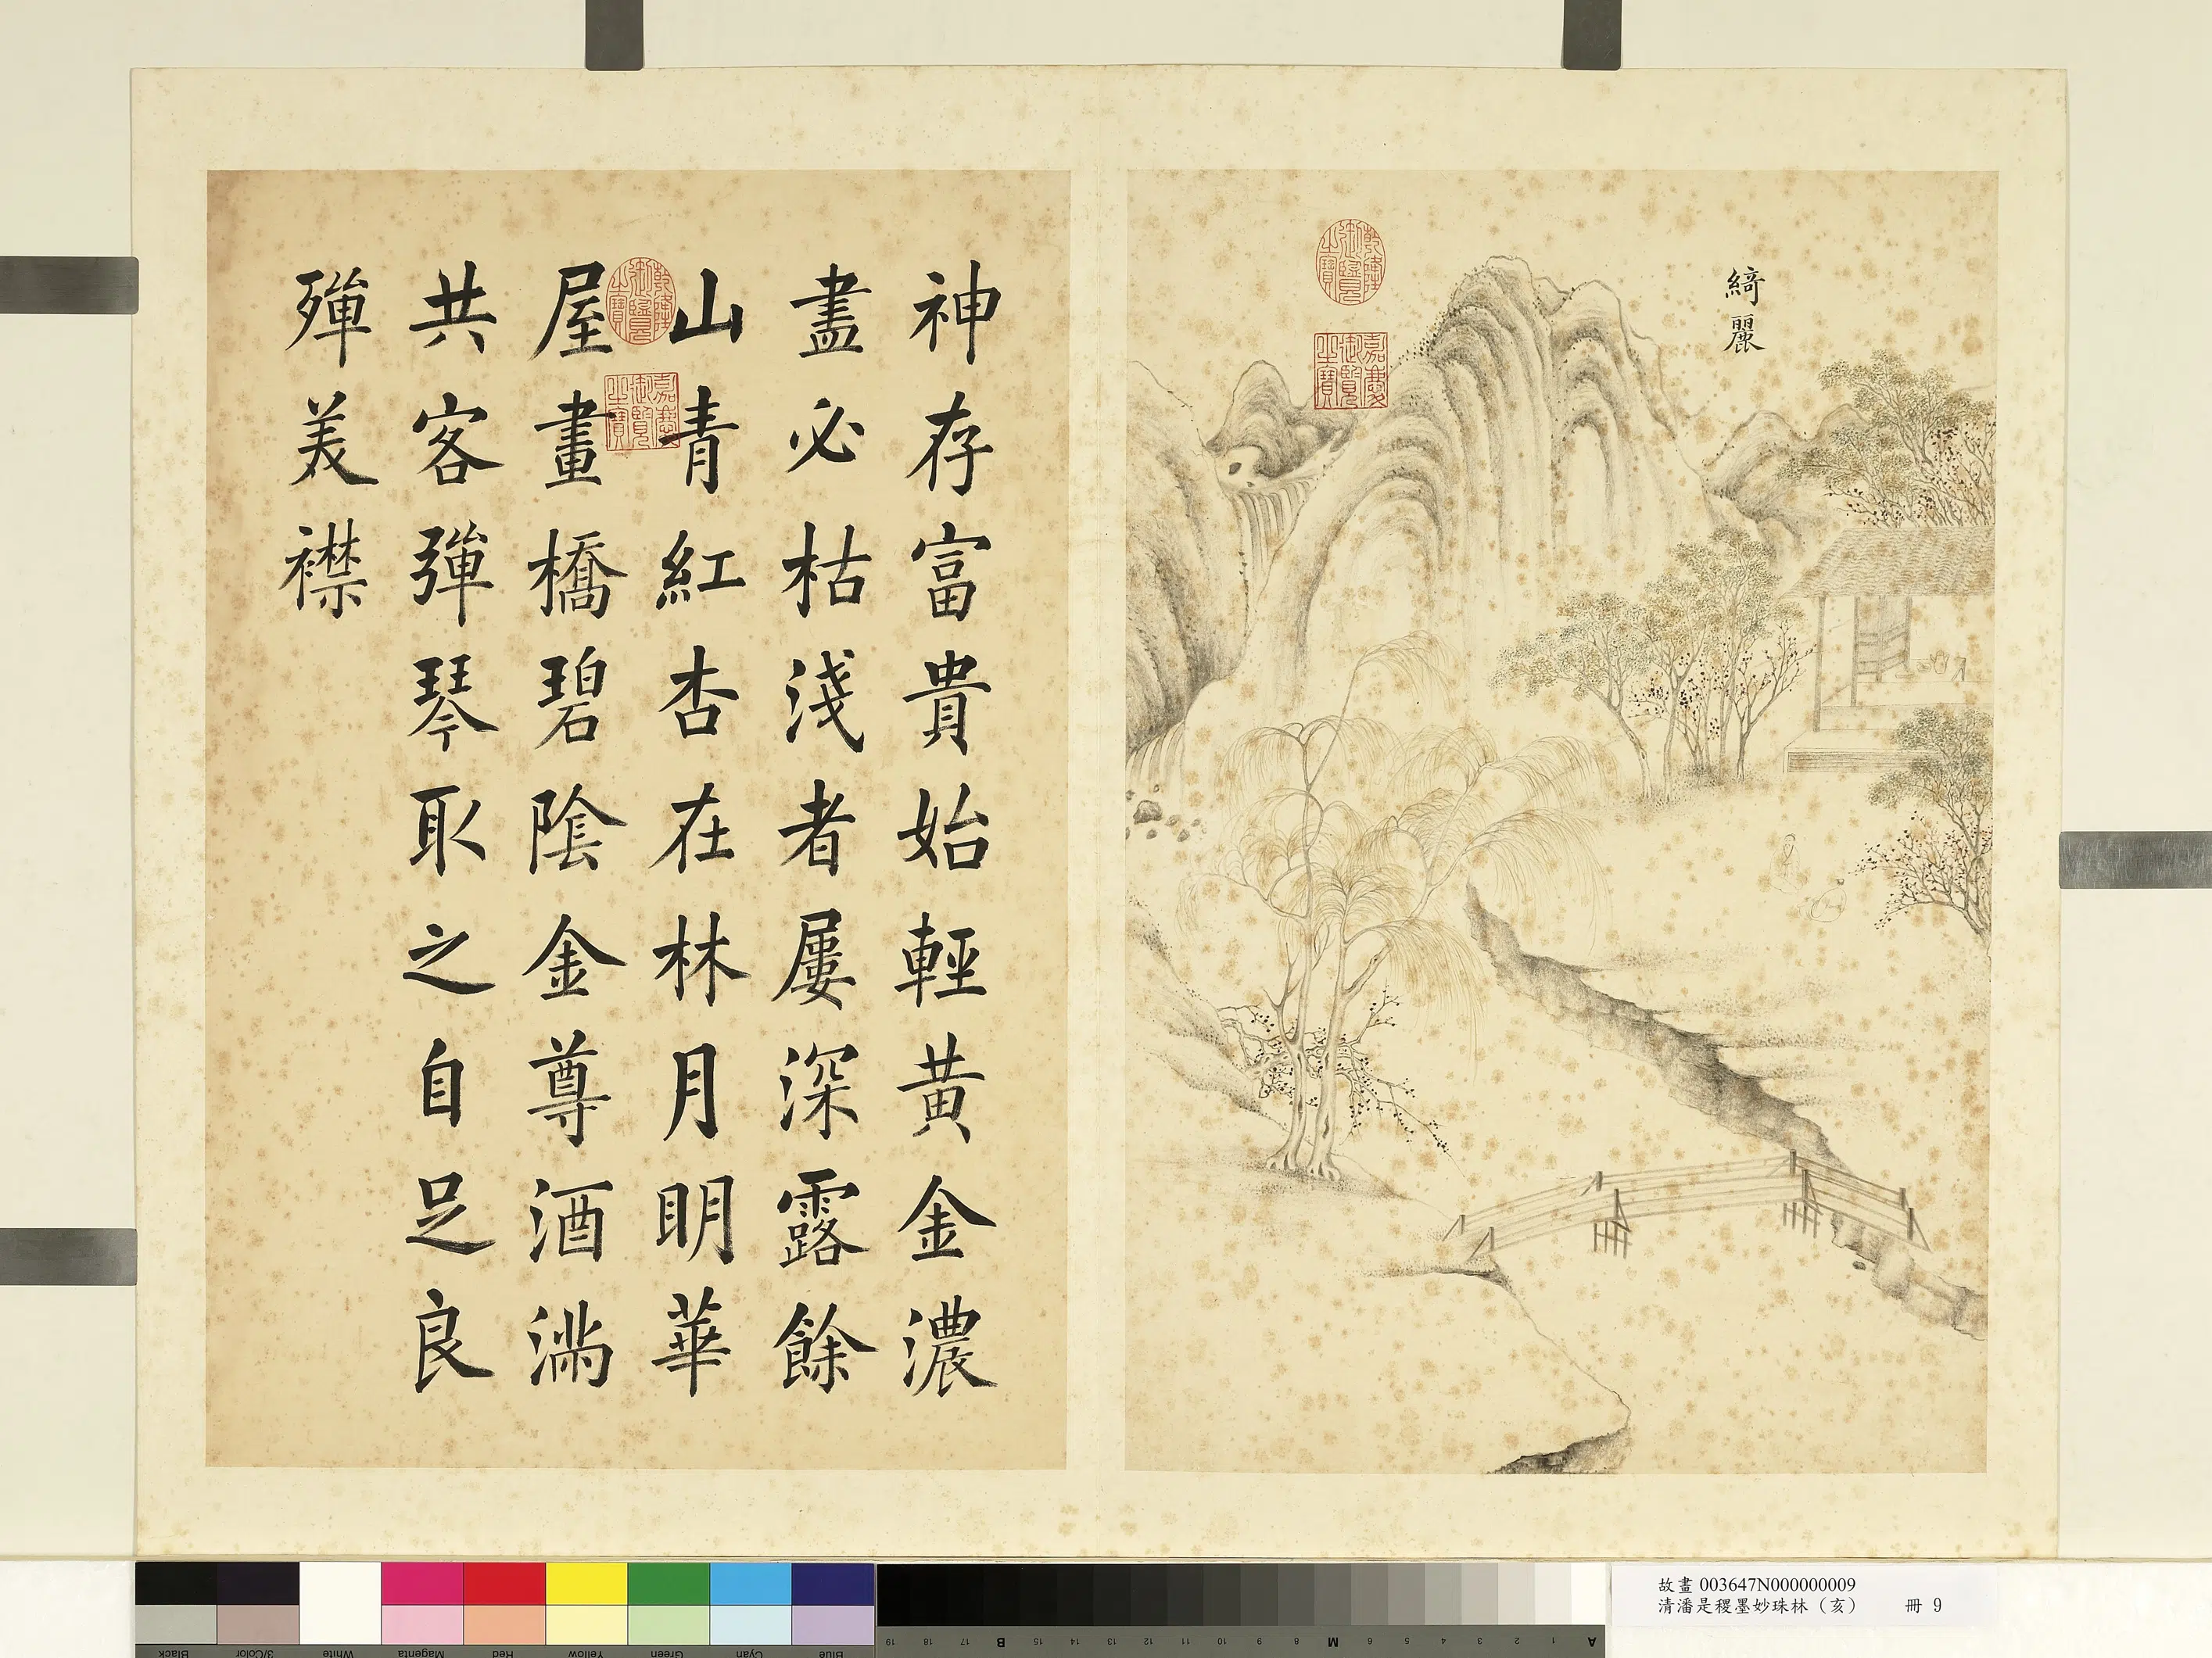 綺麗
乾隆御覽之寶
嘉慶御覽之寶
神存富貴始輕黃金濃
盡必枯淺者屢深露餘
山青紅杏在林月明華
屋畫橋碧陰金尊酒滿
共客彈琴取之自足良
殫美襟
乾隆御覽之寶
嘉慶御覽之寶
故畫 003647N000000009
清潘是稷墨妙珠林（亥） 冊 9
Black 3/Color White Magenta Red Yellow Green Cyan Blue
19 18 17 B 15 14 13 12 11 10 9 8 M 6 5 4 3 2 1 A